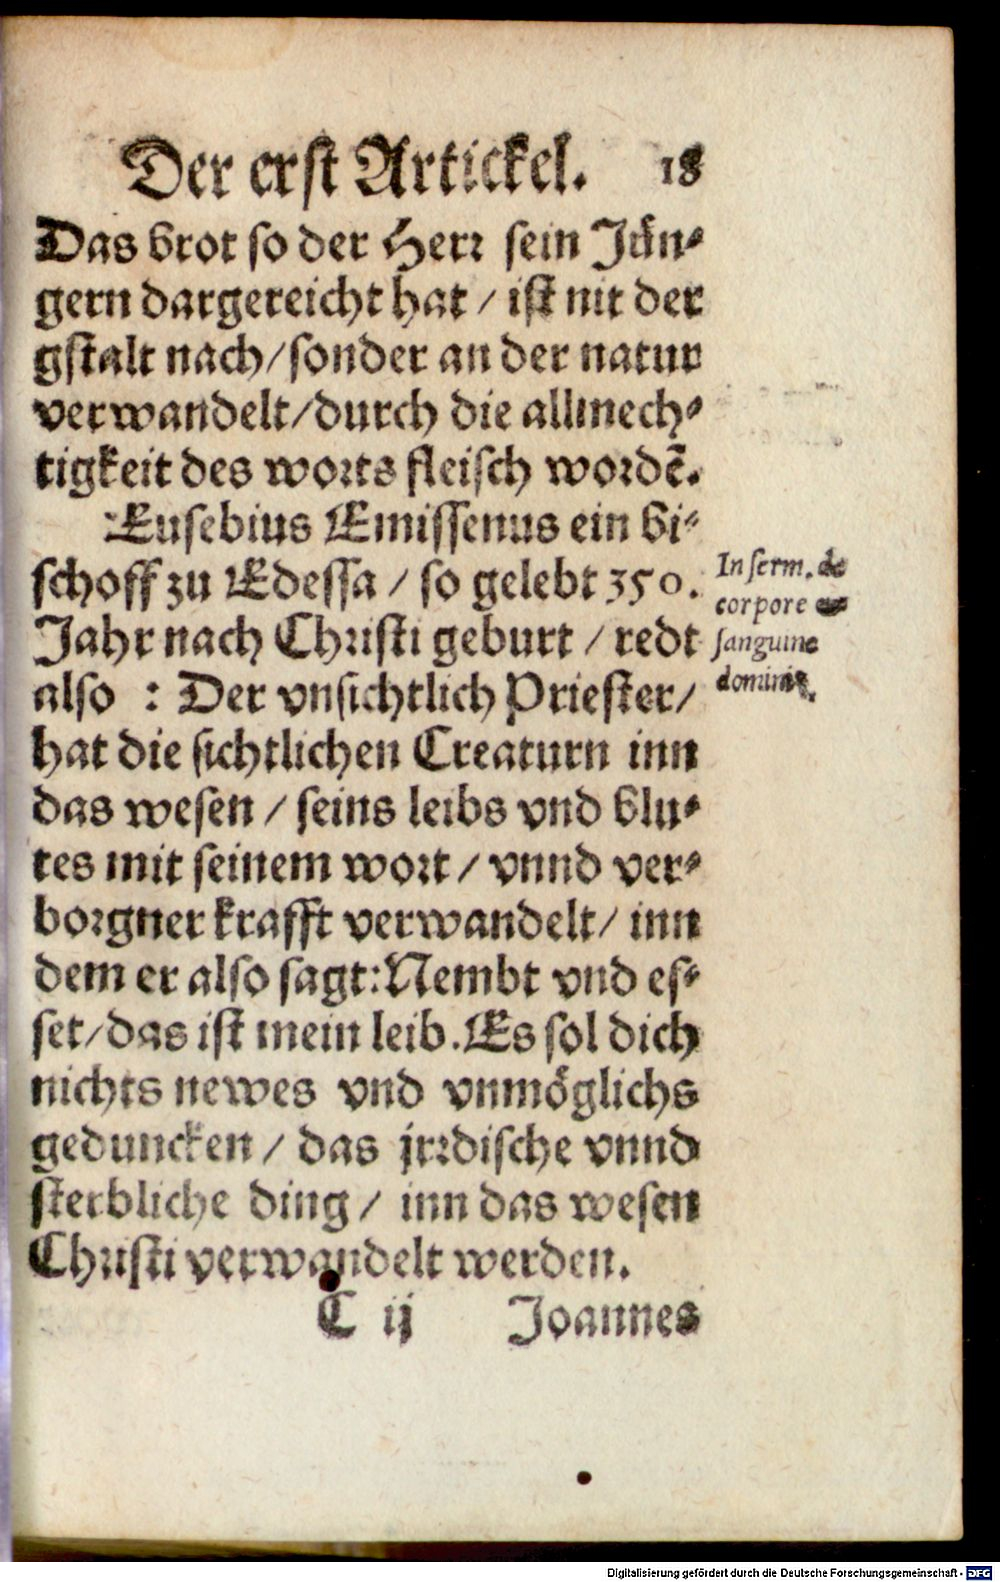 Der erst Artickel. 18
Das brot so der Herr sein Jün-
gern dargereicht hat / ist nit der
gstalt nach/sonder an der natur
verwandelt/durch die allmech-
tigkeit des worts fleisch wordẽ.
Eusebius Emissenus ein bi-
schoff zu Edessa / so gelebt 350.
Jahr nach Christi geburt / redt
also : Der vnsichtlich Priester/
hat die sichtlichen Creaturn inn
das wesen / seins leibs vnd blu-
tes mit seinem wort / vnnd ver-
borgner krafft verwandelt/ inn
dem er also sagt:Nembt vnd es-
set/das ist mein leib.Es sol dich
nichts newes vnd vnmöglichs
geduncken / das jrrdische vnnd
sterbliche ding / inn das wesen
Christi verwandelt werden.
C ij Joannes
In serm. de
corpore &
sanguine
domini.
Digitalisierung gefördert durch die Deutsche Forschungsgemeinschaft - DFG